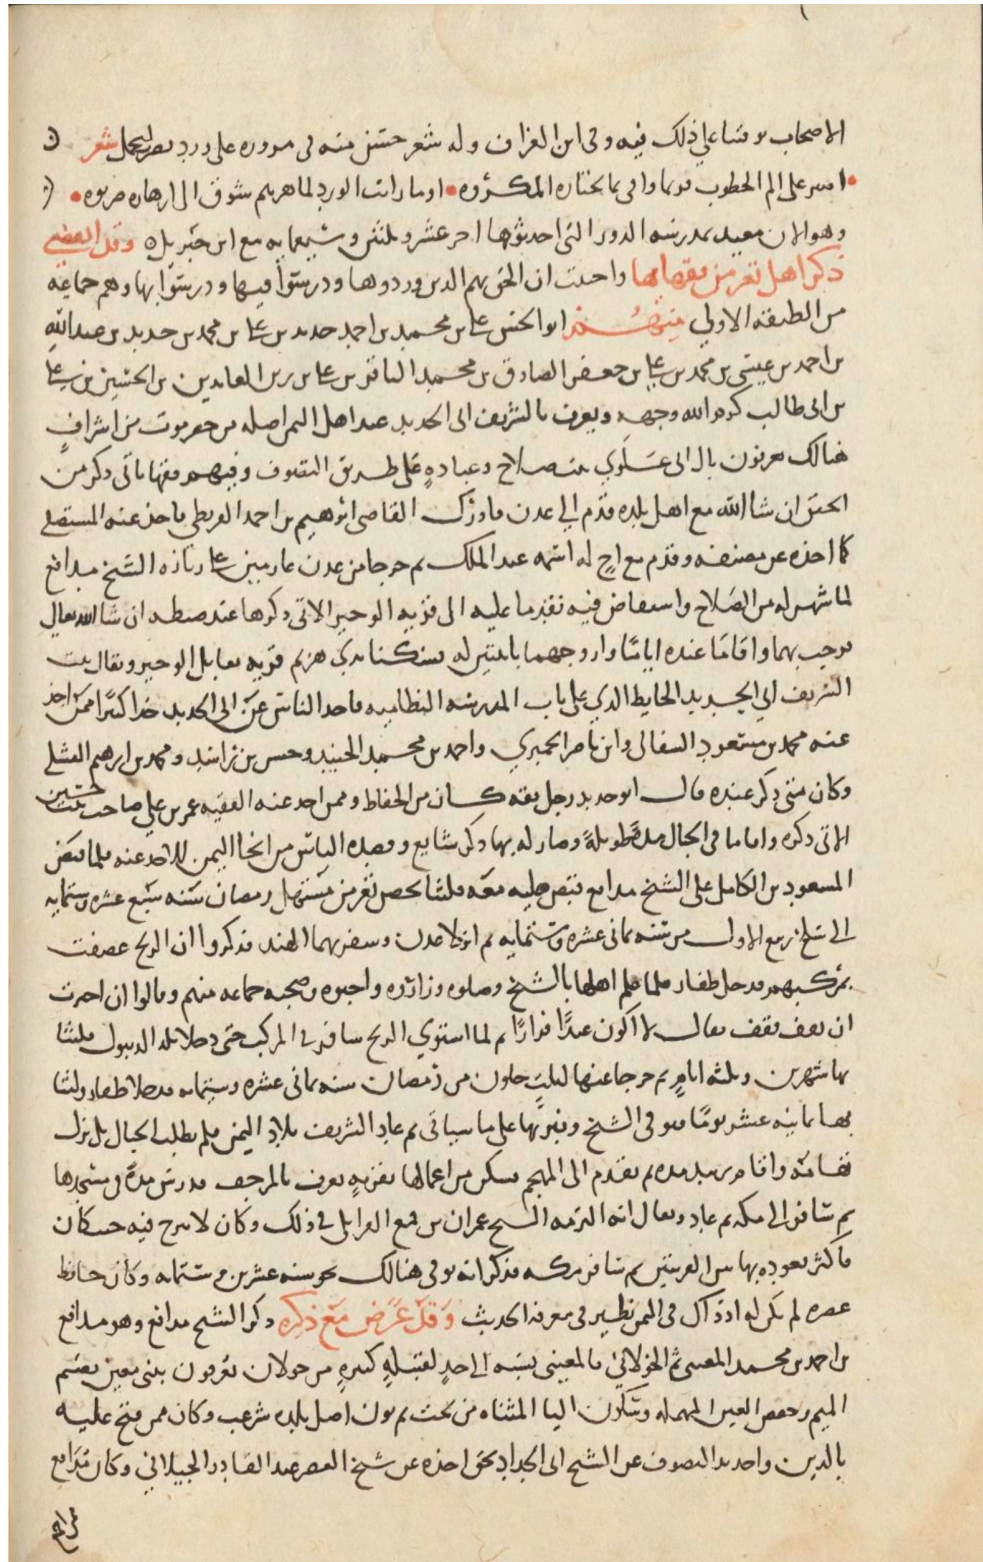 الاصحاب يومنا على ذلك فيه وفى ابن الغزاف وله شعر حسن منه فى مروره على ورد بصر لبحل شعر
اصبر على الم الخطوب فربما وافى بما تختاره المكروه اوما رايت الورد لما هزهم شوق الى ازهاره
وهو الان معيد بمدرسه الدور التى احدثوها احد عشر وثلثين وسبعمايه مع ابن جبريل وقد انقضى
ذكر اهل تعز من فقهائها واحببت ان الحق بهم الذين وردوها ودرسوا فيها ودرسوا بها وهم جماعه
من الطبقه الاولى منهم ابو الحسن على بن محمد بن احمد حديد بن على بن محمد بن حديد بن عبدالله
بن احمد بن عيسى بن محمد بن على بن جعفر الصادق بن محمد الباقر بن على بن زين العابدين بن الحسين بن على
بن ابى طالب كرم الله وجهه ويعرف بالشريف ابى الحديد عند اهل اليمن اصله من حضرموت من اشراف
هنالك يعرفون بال ابى علوي بيت صلاح وعباده على طريق التصوف وفيهم فقها ياتى ذكر من
اتحقق ان شا الله مع اهل بلده قدم الى عدن فادرك القاضى ابرهيم بن احمد القريظى فاخذ عنه المستصفى
كما اخذه عن مصنفه وقدم مع اخ له اسمه عبد الملك ثم خرجا من عدن عازمين على زيارة الشيخ مدافع
لما شهر له من الصلاح واستفاض فيه فقدما عليه الى قريه الوحيز الاتى ذكرها عند ضبطه ان شا الله تعالى
فرحب بهما واقاما عنده اياما وازوجهما بابنتين له فسكنا بذي هزيم قريه تقابل الوحيز ويقال بيت
الشريف ابي الجديد الحايط الذي على باب المدرسه النظاميه فاخذ الناس عن ابى الحديد خذا كثيرا فممن اخذ
عنه محمد بن مسعود السفالى وابن ناصر الحميري واحمد بن محمد الجنيد وحسن بن راشد ومحمد بن ابرهيم الفشلى
وكان متى ذكر عنده قال ابو حديد رجل ثقه كان من الحفاظ وممن اخذ عنه الفقيه عمر بن علي صاحب بيت حسين
الاتى ذكره واقاما فى الجبال مدة طويلة وصار له بها ذكر شايع وقصده الناس من انحا اليمن للاخذ عنه فلما قبض
المسعود بن الكامل على الشيخ مدافع قبض عليه معه فلبثا بحصن تعز من مستهل رمضان سنه سبع عشره وستمايه
الى سلخ ربيع الاول من سنه ثمانى عشره وستمايه ثم انزلا عدن وسفر بهما الهند فذكروا ان الريح عصفت
بمركبهم فدخل ظفار فلما علم اهلها بالشيخ وصلوه وزاروه واحبوه وصحبه جماعه منهم وقالوا ان احببت
ان تقف تقف فقال لا اكون عبدا فرارا ثم لما استوي الريح سافر فى المركب حتى دخلا بلد الديبول فلبثا
بها شهرين وثلثه ايام ثم خرجا عنها لليلتين خلون من رمضان سنه ثمانى عشره وستمايه فدخلا ظفار ولبثا
بها ثمانيه عشر يوما فتوفى الشيخ وقبر بها على ما سياتى ثم عاد الشريف بلاد اليمن فلم يطلب الجبال بل نزل
تهامه واقام بزبيد مده ثم تقدم الى المهجم فسكن من اعمالها بقريه تعرف بالمرجف فدرس مدة فى مسجدها
ثم سافر الى مكه ثم عاد ويقال انه الزمه الشيخ عمران بن قمع القرابلى فى ذلك وكان لا يبرح فيه حيث كان
فاكثر تعوده بها من القريتين ثم سافر مكه فذكر انه توفى هنالك نحو سنه عشرين وستمايه وكان حافظ
عصره لم يكن له اذ ذاك فى اليمن نظير فى معرفه الحديث وقد عرض مع ذكره ذكر الشيخ مدافع وهو مدافع
بن احمد بن محمد المعينى ثم الخولانى فالمعينى نسبه الى احد لقبيله كبيره من خولان يعرفون ببنى معين بضم
الميم وخفض العين المهمله وسكون اليا المثناه من تحت ثم نون اصل بلده شرعب وكان ممن فتح عليه
بالدين واخذ يد التصوف عن الشيخ ابى الحداد بحق اخذه عن شيخ العصر عبد القادر الجيلانى وكان مدافع